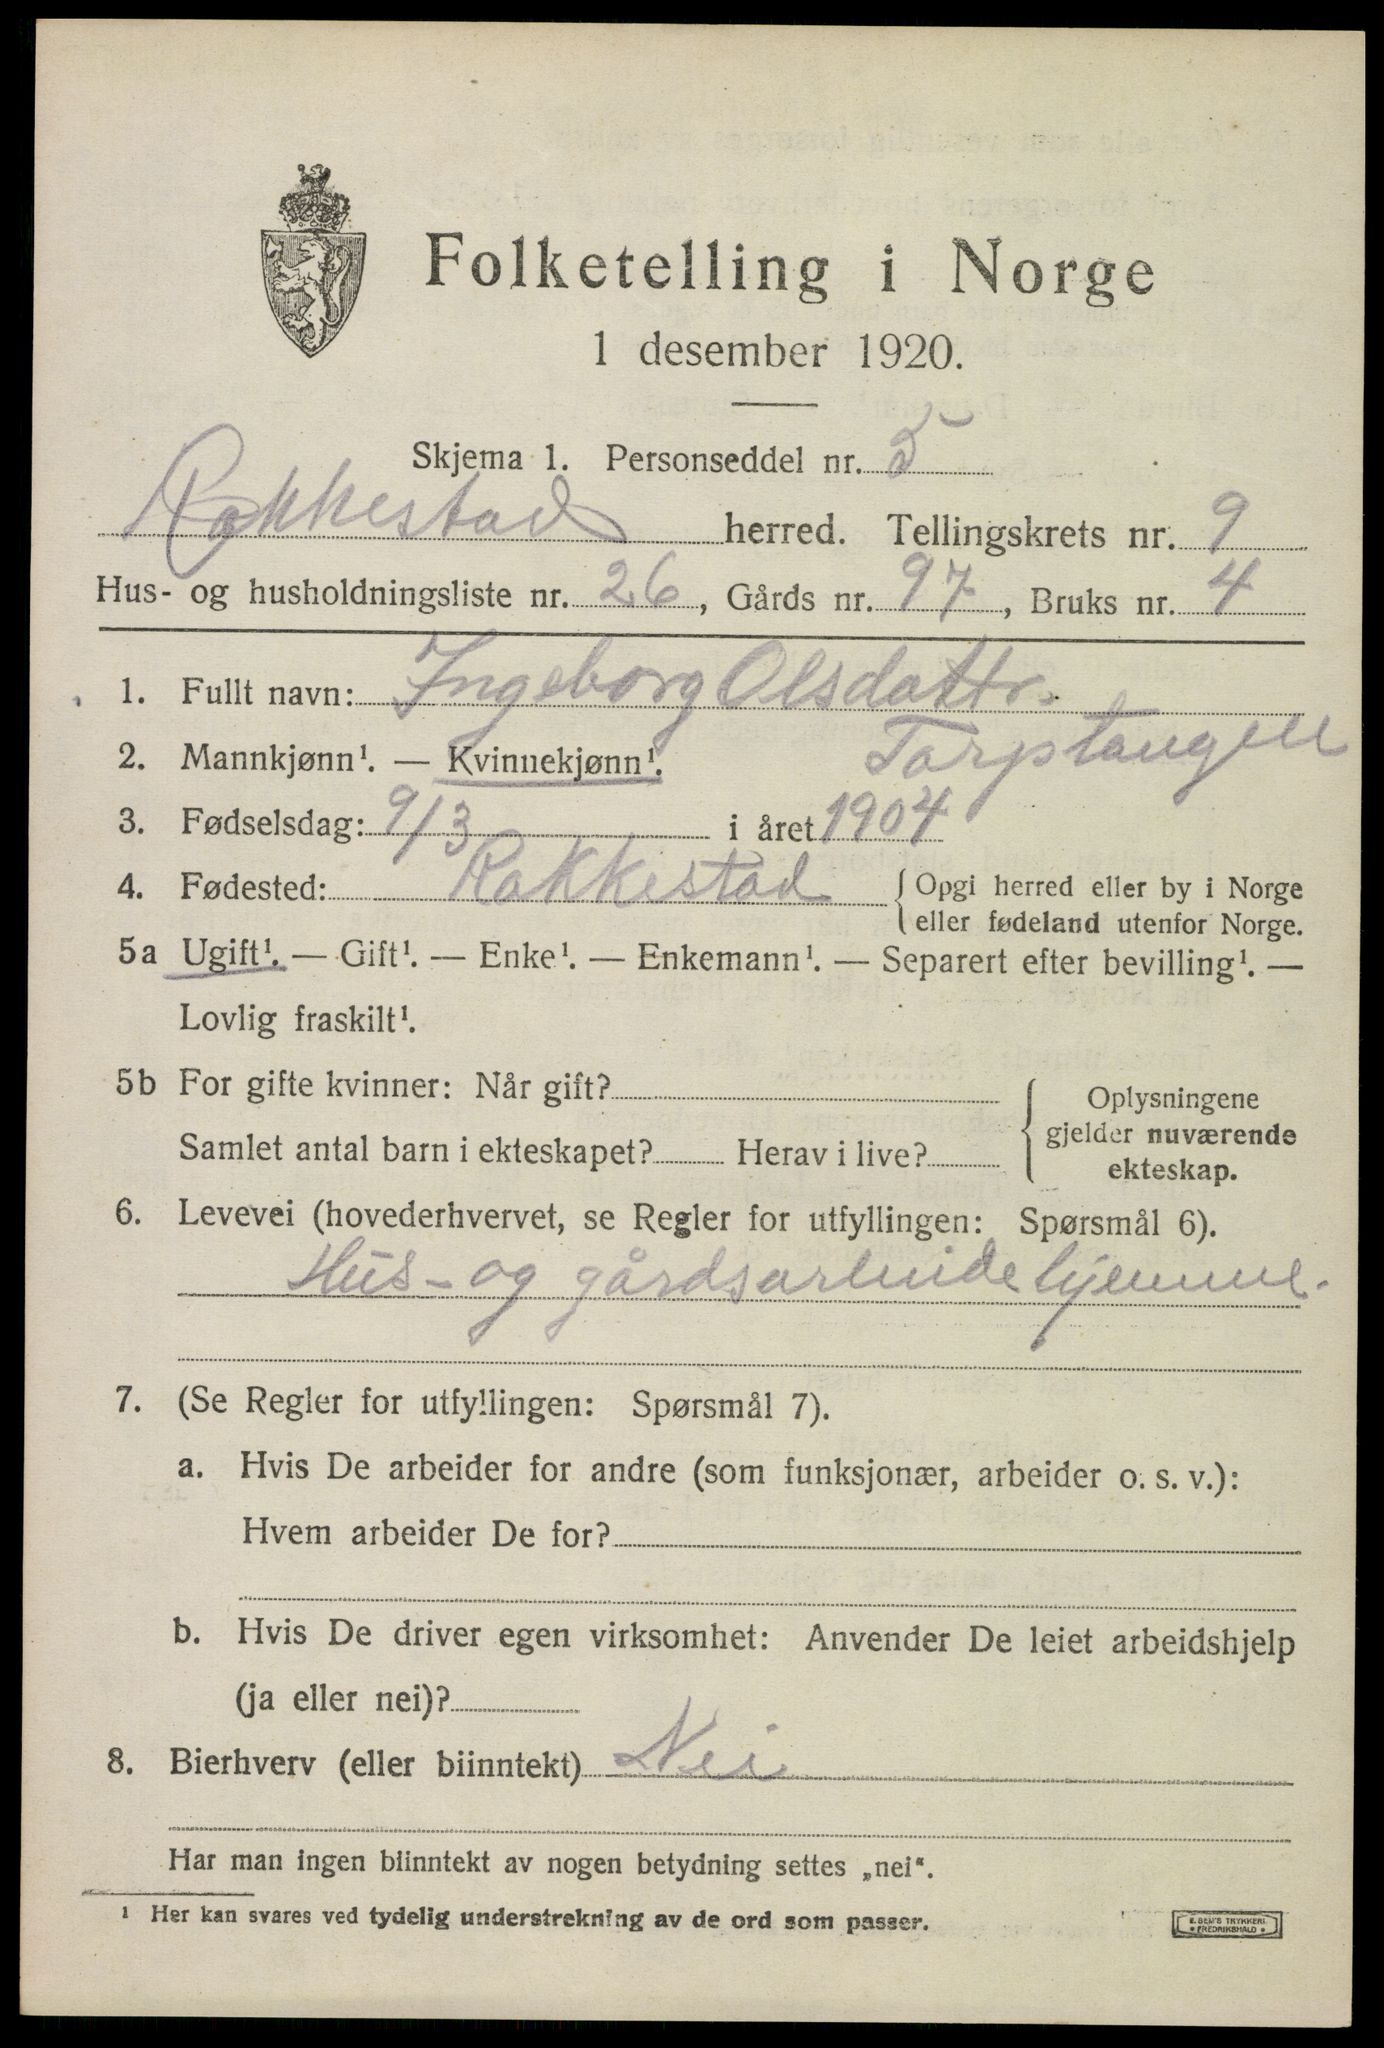 Folketelling i Norge
1 desember 1920.
Skjema 1. Personseddel nr. 5
Rakkestad herred. Tellingskrets nr. 9
Hus- og husholdningsliste nr. 26, Gårds nr. 97, Bruks nr. 4
1. Fullt navn: Ingeborg Olsdattr.
Torptangen
2. Mannkjønn¹. — Kvinnekjønn¹.
3. Fødselsdag: 9/3 i året 1904
4. Fødested: Rakkestad { Opgi herred eller by i Norge
eller fødeland utenfor Norge.
5a Ugift¹. — Gift¹. — Enke¹. — Enkemann¹. — Separert efter bevilling¹. —
Lovlig fraskilt¹.
5b For gifte kvinner: Når gift? { Oplysningene
gjelder nuværende
ekteskap.
Samlet antal barn i ekteskapet? Herav i live?
6. Levevei (hovederhvervet, se Regler for utfyllingen: Spørsmål 6).
Hus- og gårdsarbeide hjemme.
7. (Se Regler for utfyllingen: Spørsmål 7).
a. Hvis De arbeider for andre (som funksjonær, arbeider o. s. v.):
Hvem arbeider De for?
b. Hvis De driver egen virksomhet: Anvender De leiet arbeidshjelp
(ja eller nei)?
8. Bierhverv (eller biinntekt) Nei
Har man ingen biinntekt av nogen betydning settes „nei“.
¹ Her kan svares ved tydelig understrekning av de ord som passer.
E. SEM'S TRYKKERI
FREDRIKSHALD